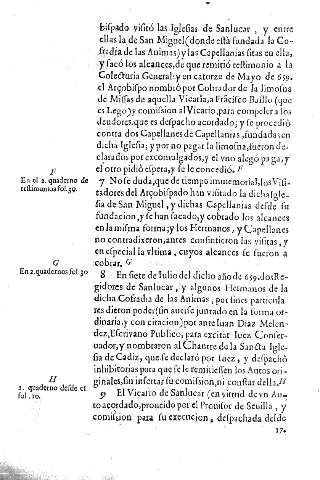 bispado visitó las Iglesias de Sanlucar, y entre
ellas la de San Miguel (donde està fundada la Co-
fradia de las Animas) y las Capellanias sitas en ella,
y sacò los alcances, de que remitiò testimonio a la
Colecturia General: y en catorze de Mayo de 659.
el Arçobispo nombrò por Cobrador de la limosna
de Missas de aquella Vicaria, a Frãcisco Baillo (que
es Lego) y comission al Vicario, para compeler a los
deudores, que es despacho acordado; y se procediò
contra dos Capellanes de Capellanias, fundadas en
dicha Iglesia; y por no pagar la limosna, fueron de-
clarados por excomulgados, y el vno alegò paga, y
el otro pidiò espera, y se le concediò. F
F
En el 2. quaderno de
testimonios fol. 59.
7 No se duda, que de tiempo immemorial, los Visi-
tadores del Arçobispado han visitado la dicha Igle-
sia de San Miguel, y dichas Capellanias desde su
fundacion, y se han sacado, y cobrado los alcances
en la misma forma; y los Hermanos, y Capellanes
no contradixeron, antes consintieron las visitas, y
en especial la vltima, cuyos alcances se fueron a
cobrar. G
G
En 2. quadernos fol 30
8 En siete de Iulio del dicho año de 659. dos Re-
gidores de Sanlucar, y algunos Hermanos de la
dicha Cofradia de las Animas, por fines particula-
res dieron poder (sin auerse juntado en la forma or-
dinaria, y con citacion) por ante Iuan Diaz Melen-
dez, Escrivano Publico, para excitar Iuez Conser-
uador, y nombraron al Chantre de la Sancta Igle-
sia de Cadiz, que se declarò por Iuez, y despachò
inhibitorias para que se le remitiessen los Autos ori-
ginales, sin insertar su comission, ni constar della. H
H
2. quaderno desde el
fol. 10.
9 El Vicario de Sanlucar (en virtud de vn Au-
to acordado, proueido por el Prouisor de Sevilla, y
comission para su execucion, despachada desde
17.